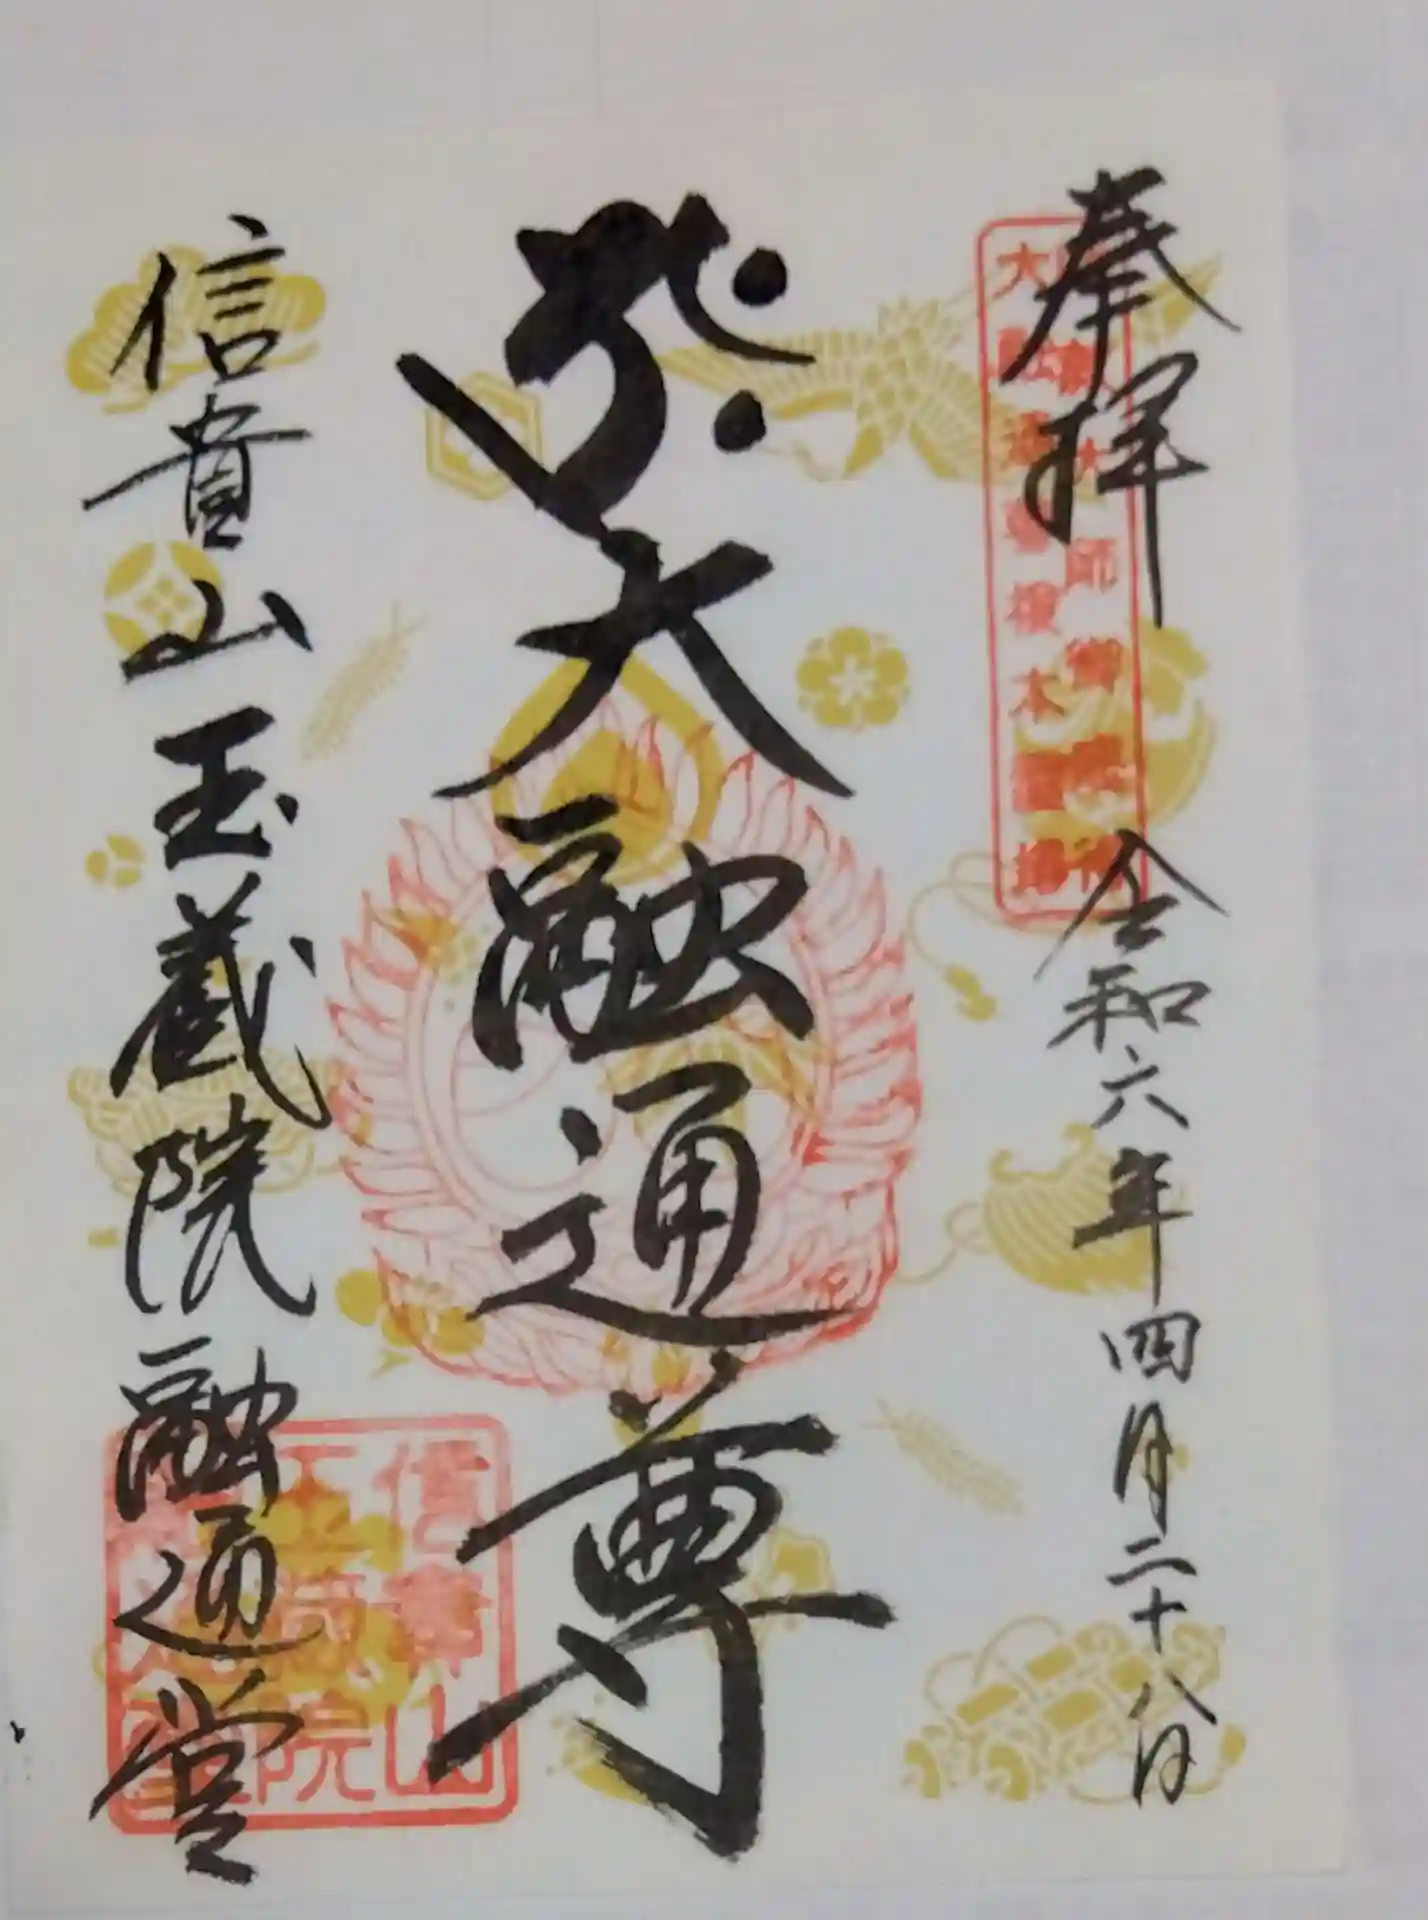 奉拝
令和六年四月二十八日
大融通尊
信貴山玉蔵院融通堂
信貴山
玉蔵院